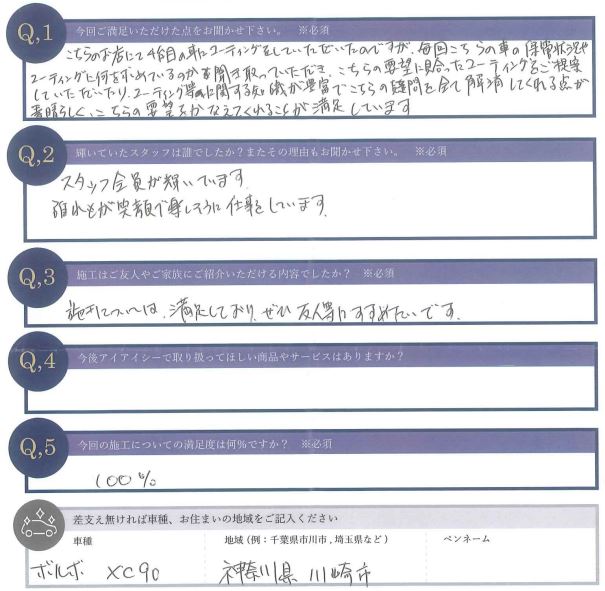 Q,1 今回ご満足いただけた点をお聞かせ下さい。 ※必須
こちらのお店にて4台目の車にコーティングをしていただいたのですが、毎回こちらの車の保管状況や
コーティングに何を求めているのかを聞き取っていただき、こちらの要望に見合ったコーティングをご提案
していただいたり、コーティング等に関する知識が豊富でこちらの疑問を全て解消してくれる点が
素晴らしく、こちらの要望をかなえてくれることが満足しています
Q,2 輝いていたスタッフは誰でしたか？またその理由もお聞かせ下さい。 ※必須
スタッフ全員が輝いています。
誰もが笑顔で楽しそうに仕事をしています。
Q,3 施工はご友人やご家族にご紹介いただける内容でしたか？ ※必須
施工については、満足しており、ぜひ友人等にすすめたいです。
Q,4 今後アイアイシーで取り扱ってほしい商品やサービスはありますか？
Q,5 今回の施工についての満足度は何％ですか？ ※必須
100％
差支え無ければ車種、お住まいの地域をご記入ください
車種 地域（例：千葉県市川市，埼玉県など） ペンネーム
ボルボ XC90 神奈川県 川崎市